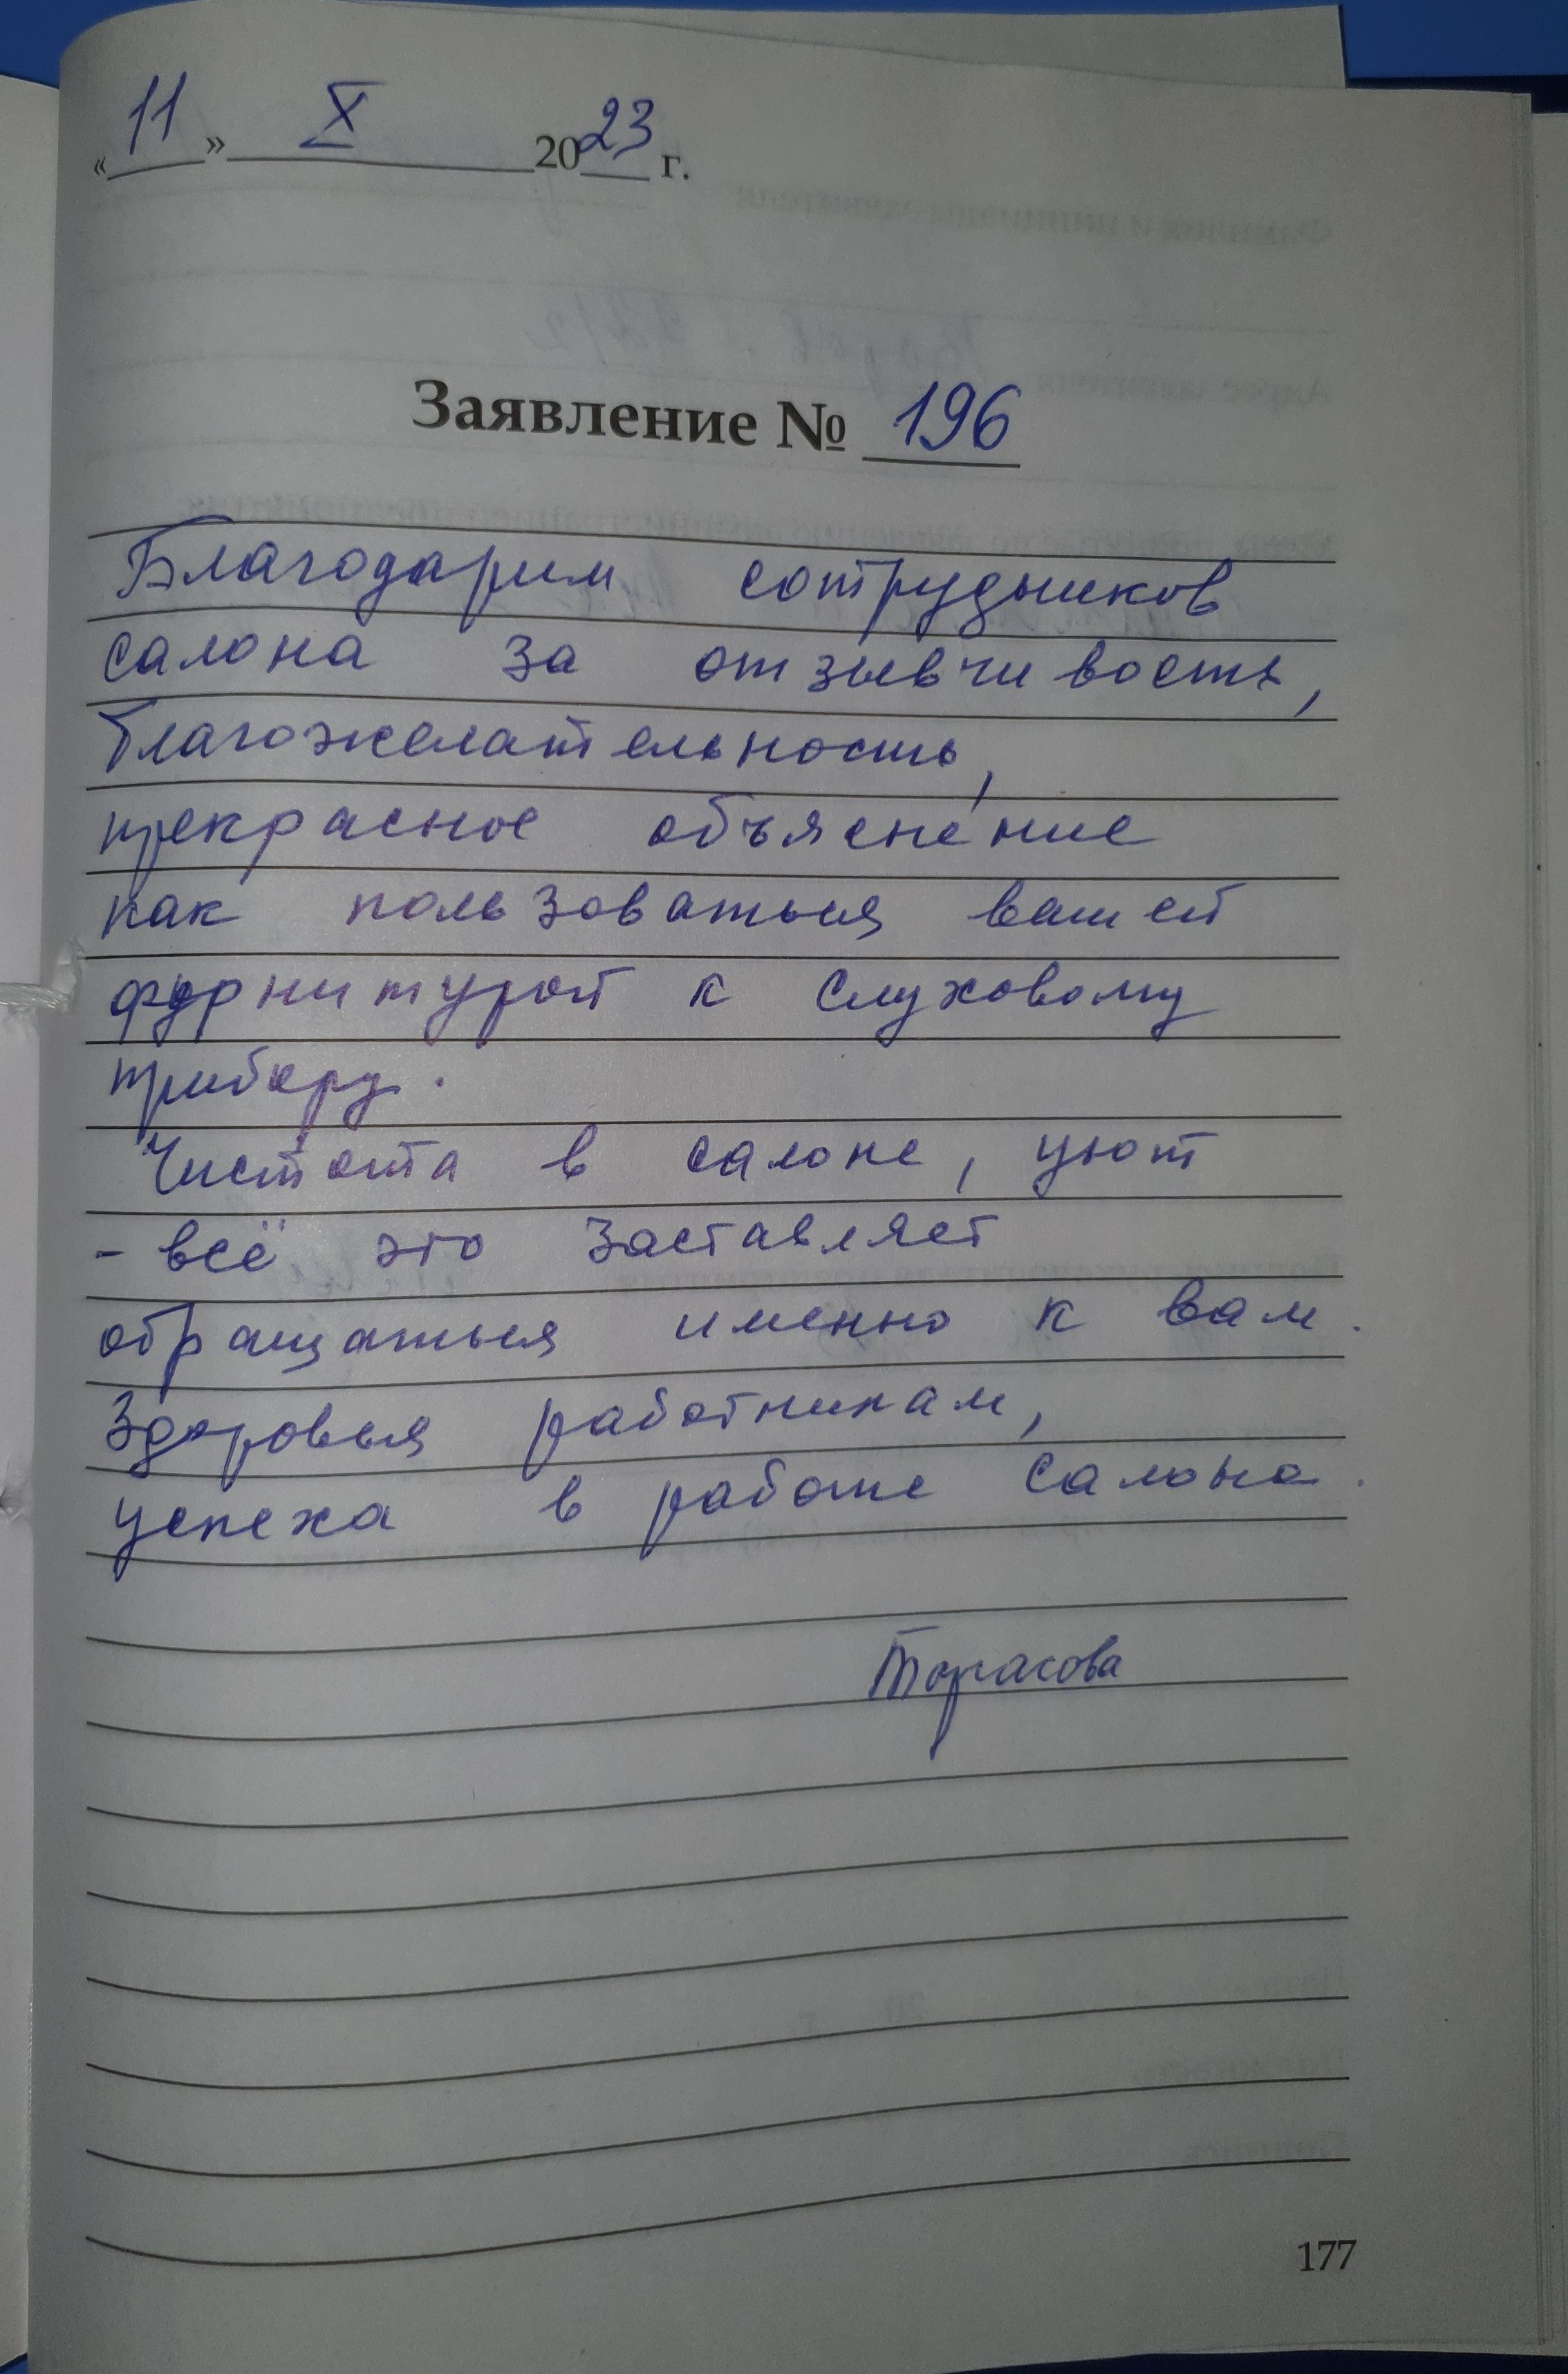 « 11 » X 2023 г.
Заявление № 196
Благодарим сотрудников
салона за отзывчивость,
благожелательность,
прекрасное объяснение
как пользоваться вашей
фурнитурой к слуховому
прибору.
Чистота в салоне, уют
- всё это заставляет
обращаться именно к вам.
Здоровья работникам,
успеха в работе салона.
Тарасова
177